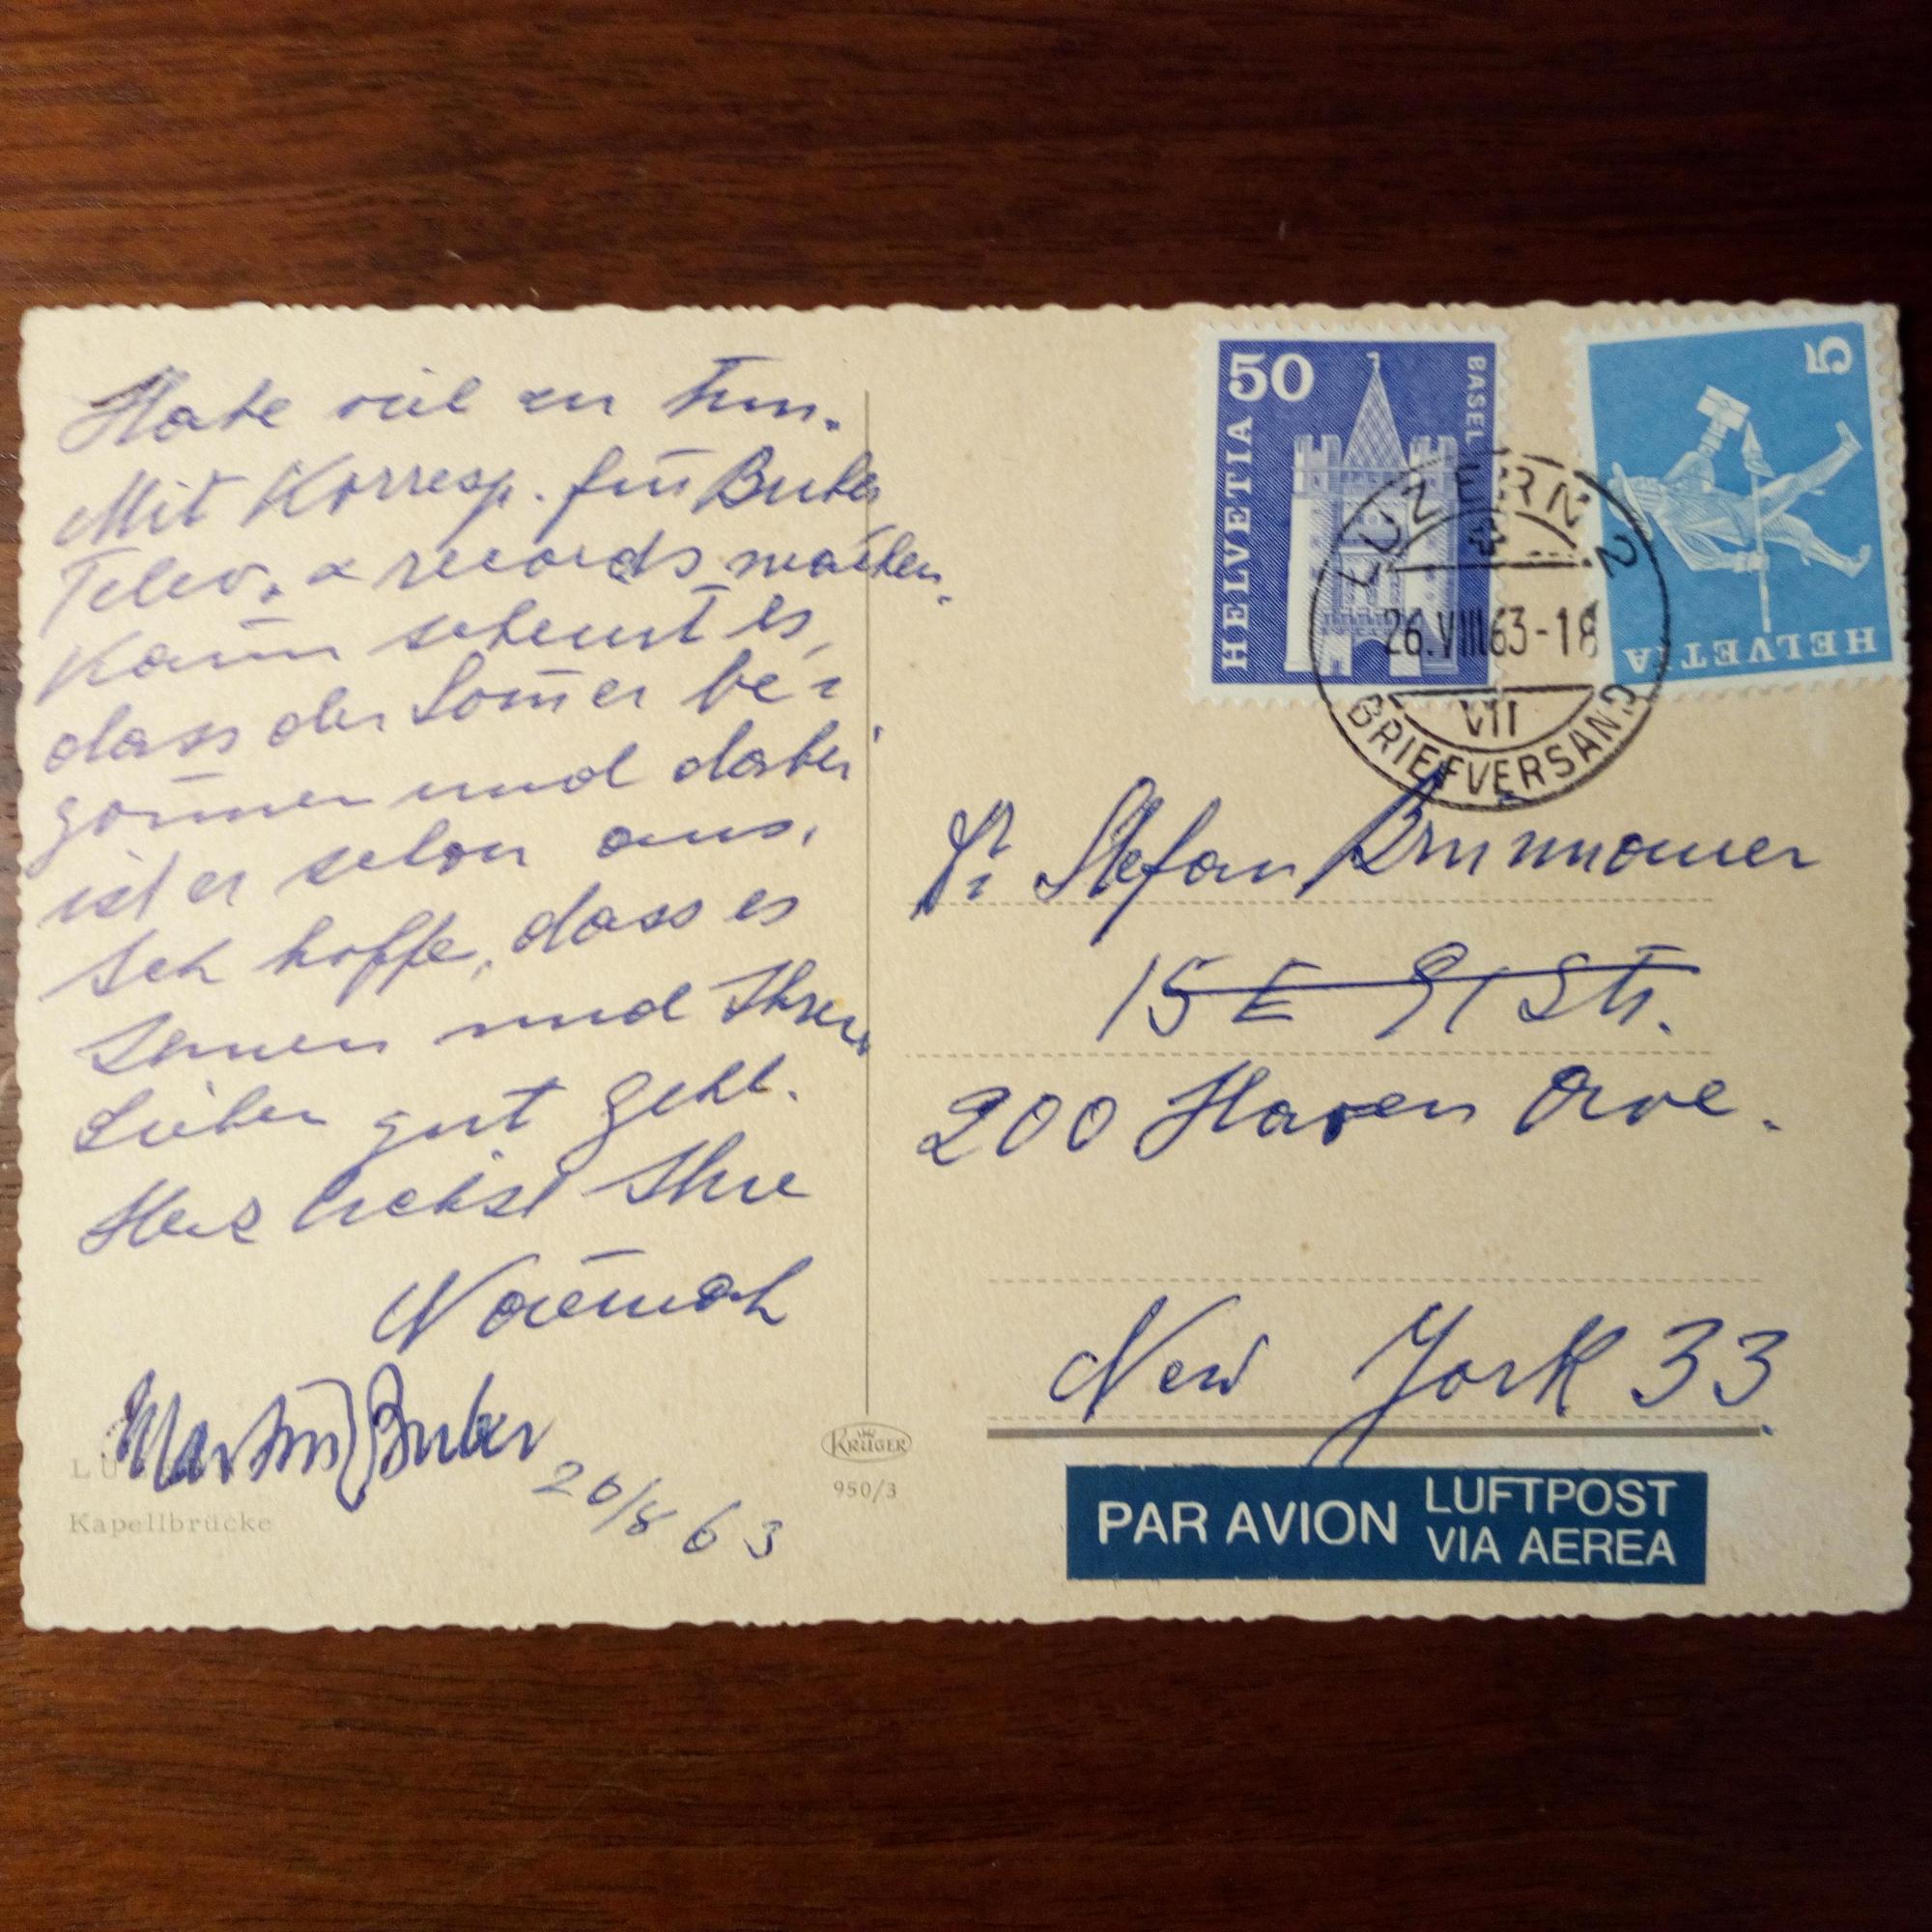 Habe viel zu tun.
Mit Korresp. für Buber
Telev. & records machen.
Kaum̄ scheint es,
dass der Som̄er be-
gon̄en und dabei
ist er schon aus.
Ich hoffe, dass es
Ihnen und Ihren
Lieben gut geht.
Herzlichst Ihre
Naémah
Martin Buber
20/8 63
LU
Kapellbrücke
KRÜGER
950/3
50
HELVETIA
BASEL
5
HELVETIA
LUZERN 2
26.VIII.63-18
VII
BRIEFVERSAND
Stefan Brunnauer
15 E 91 Str.
200 Haven Ave.
New York 33.
PAR AVION
LUFTPOST
VIA AEREA